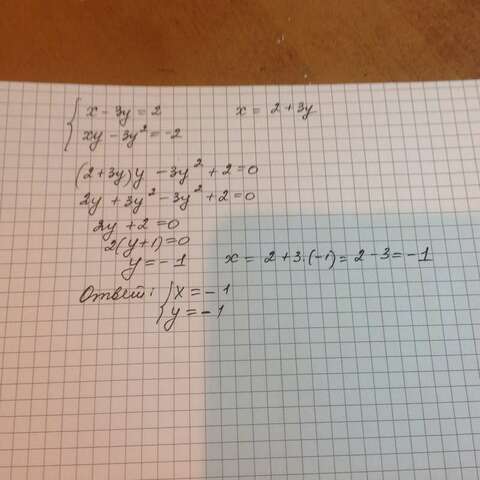 x - 3y = 2
xy - 3y² = -2
x = 2 + 3y
(2+3y)y - 3y² + 2 = 0
2y + 3y² - 3y² + 2 = 0
2y + 2 = 0
2(y+1) = 0
y = -1
x = 2 + 3·(-1) = 2 - 3 = -1
Ответ: { x = -1
y = -1